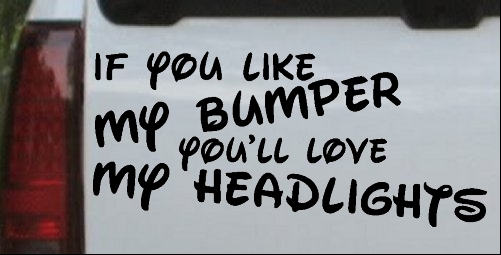 IF YOU LIKE
MY BUMPER
YOU'LL LOVE
MY HEADLIGHTS